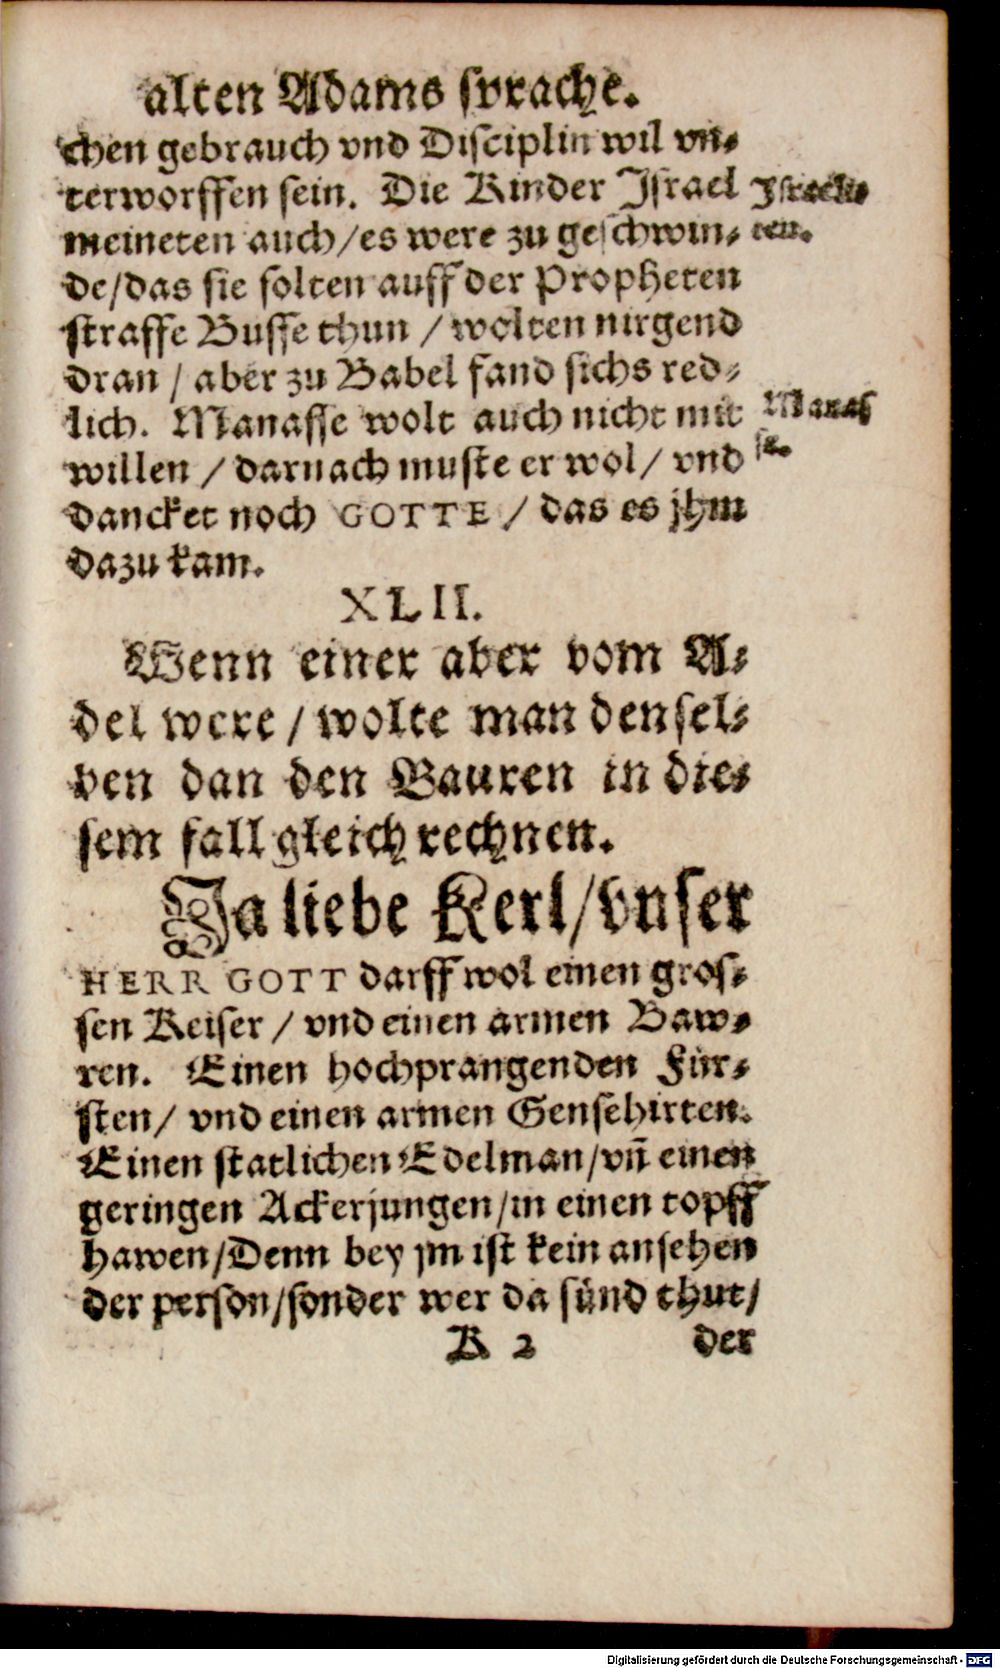 alten Adams sprache.
chen gebrauch vnd Disciplin wil vn⸗
terworffen sein. Die Kinder Jsrael
Jsraeli⸗
meineten auch/es were zu geschwin⸗
ten.
de/das sie solten auff der Propheten
straffe Busse thun / wolten nirgend
dran / aber zu Babel fand sichs red⸗
lich. Manasse wolt auch nicht mit
Manas
willen / darnach muste er wol/ vnd
se.
dancket noch GOTTE / das es jhm
dazu kam.
XLII.
Wenn einer aber vom A⸗
del were / wolte man densel⸗
ben dan den Bauren in die⸗
sem fall gleich rechnen.
Ja liebe Kerl/vnser
HERR GOTT darff wol einen gros⸗
sen Keiser / vnd einen armen Baw⸗
ren. Einen hochprangenden Für⸗
sten/ vnd einen armen Gensehirten.
Einen statlichen Edelman/vn̄ einen
geringen Ackerjungen/in einen topff
hawen/Denn bey jm ist kein ansehen
der person/sonder wer da sünd thut/
K 2 der
Digitalisierung gefördert durch die Deutsche Forschungsgemeinschaft - DFG